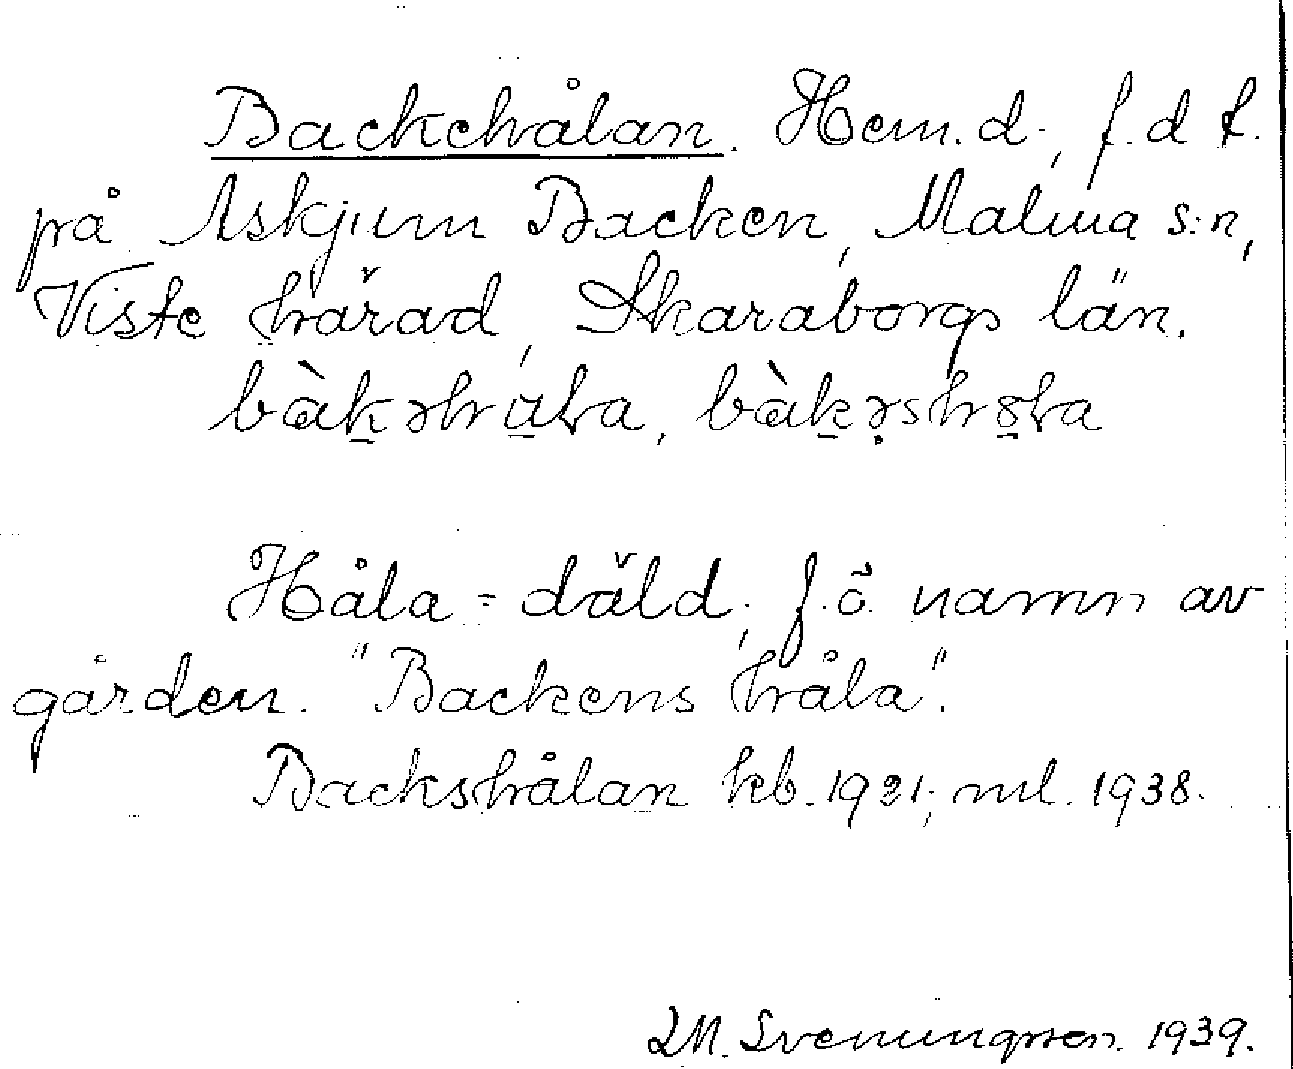 Backehålan. Hem.d., f.d t.
på Askjum Backen, Malma s:n,
Viste härad, Skaraborgs län.
bàk̠əhu̠ɫa, bàk̠ə̣sho̠ɫa
Håla = däld; f.ö. namn av
gården. "Backens håla".
Backshålan kb. 1921; ml. 1938.
I.M. Svenungsson. 1939.